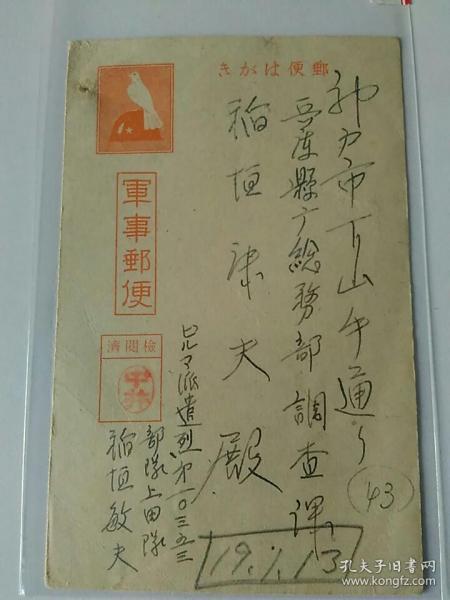 郵便はがき
軍事郵便
検閲済
神戸市下山手通り
兵庫縣廳総務部調査課
稲垣 夫 殿
ビルマ派遣烈第一〇三五三
部隊上田隊
稲垣敏夫
43
19.1.13
孔夫子旧书网
www.kongfz.com